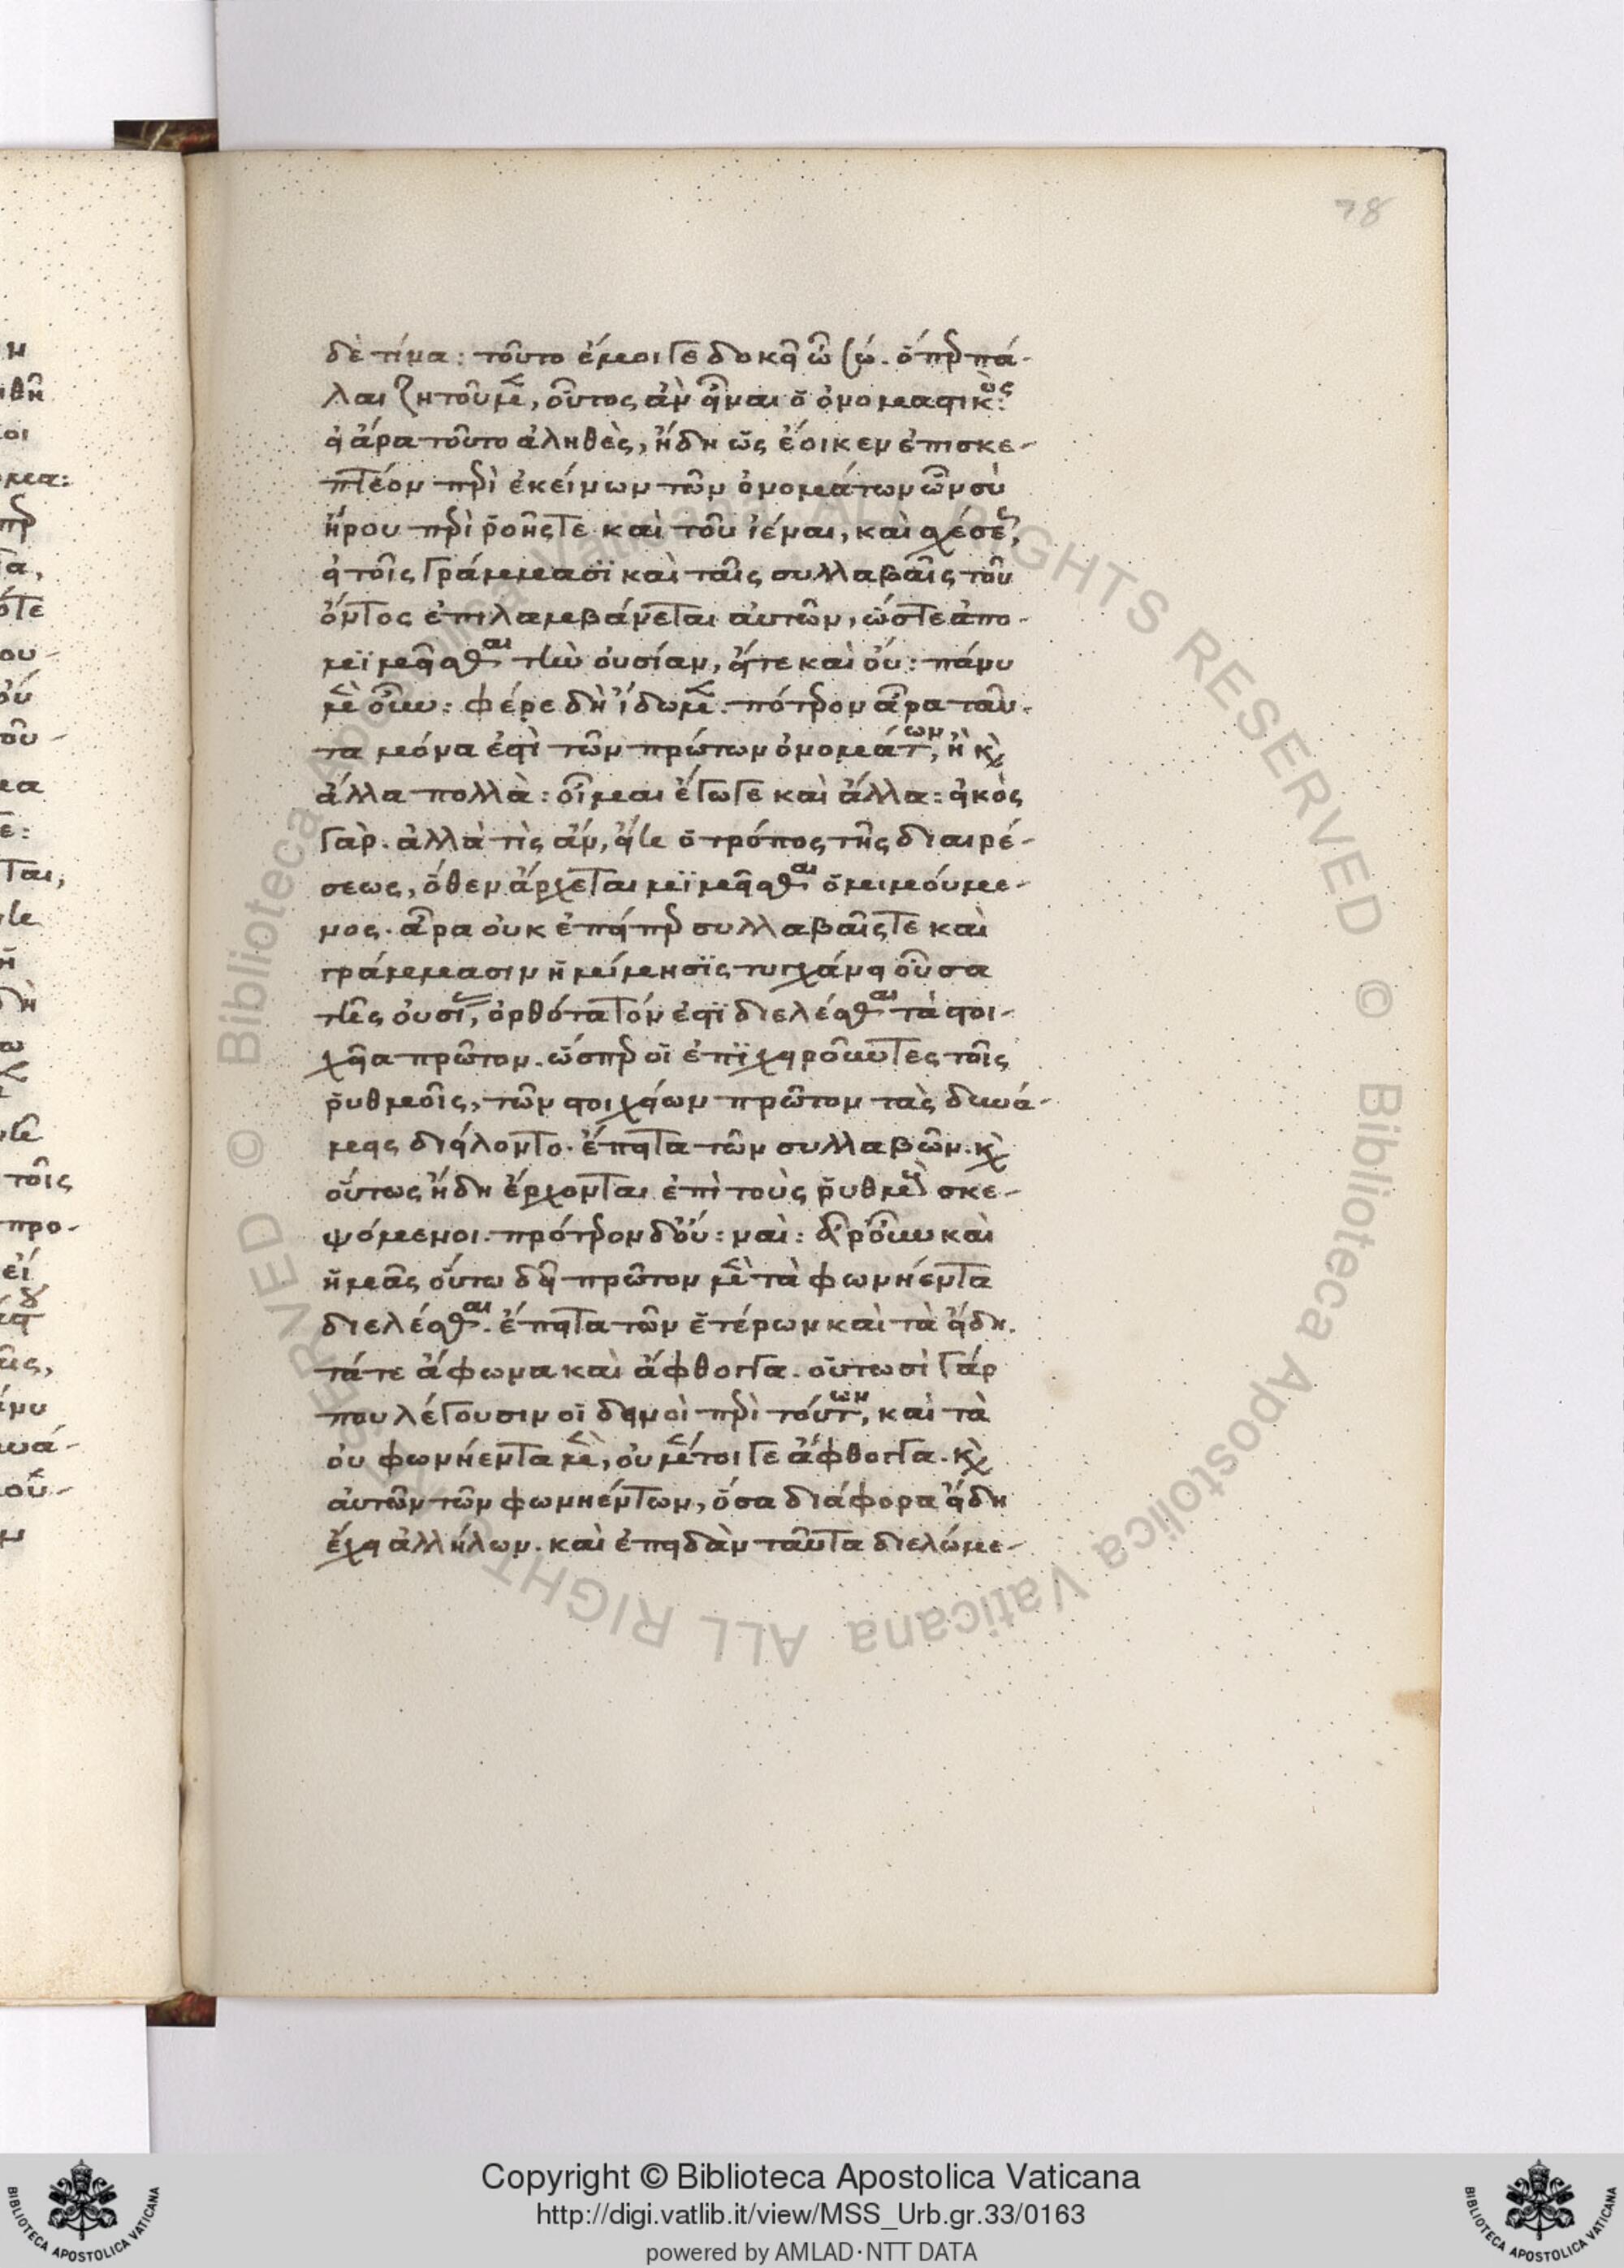 78
δὲ τίνα: τοῦτο ἔμοιγε δοκεῖ ὦ σώ. ὅπερ πά-
λαι ζητοῦμεν, οὗτος ἂν εἶναι ὁ ὀνομαστικὸς:
εἰ ἄρα τοῦτο ἀληθὲς, ἤδη ὡς ἔοικεν ἐπισκε-
πτέον περὶ ἐκείνων τῶν ὀνομάτων ὧν σὺ
ἤρου περὶ ῥοῆς τε καὶ τοῦ ἰέναι, καὶ σχέσεως,
εἰ τοῖς γράμμασι καὶ ταῖς συλλαβαῖς τοῦ
ὄντος ἐπιλαμβάνεται αὐτῶν, ὥστε ἀπο-
μιμεῖσθαι τὴν οὐσίαν, εἴτε καὶ οὔ: πάνυ
μὲν οὖν: φέρε δὴ ἴδωμεν. πότερον ἄρα ταῦ-
τα μόνα ἐστὶ τῶν πρώτων ὀνομάτων, ἢ καὶ
ἄλλα πολλὰ: οἶμαι ἔγωγε καὶ ἄλλα: εἰκὸς
γάρ. ἀλλὰ τὶς ἂν, εἴη ὁ τρόπος τῆς διαιρέ-
σεως, ὅθεν ἄρχεται μιμεῖσθαι ὁ μιμούμε-
νος. ἆρα οὐκ ἐπείπερ συλλαβαῖς τε καὶ
γράμμασιν ἡ μίμησις τυγχάνει οὖσα
τῆς οὐσίας, ὀρθότατόν ἐστι διελέσθαι τὰ στοι-
χεῖα πρῶτον. ὥσπερ οἱ ἐπιχειροῦντες τοῖς
ῥυθμοῖς, τῶν στοιχείων πρῶτον τὰς δυνά-
μεις διείλοντο. ἔπειτα τῶν συλλαβῶν. καὶ
οὕτως ἤδη ἔρχονται ἐπὶ τοὺς ῥυθμοὺς σκε-
ψόμενοι. πρότερον δ' οὔ: ναὶ: ἆρ' οὖν καὶ
ἡμᾶς οὕτω δεῖ πρῶτον μὲν τὰ φωνήεντα
διελέσθαι. ἔπειτα τῶν ἑτέρων καὶ τὰ εἴδη.
τά τε ἄφωνα καὶ ἄφθογγα. οὑτωσὶ γάρ
που λέγουσιν οἱ δεινοὶ περὶ τούτων, καὶ τὰ
οὐ φωνήεντα μὲν, οὐ μέντοι γε ἄφθογγα. καὶ
αὐτῶν τῶν φωνηέντων, ὅσα διάφορα εἴδη
ἔχει ἀλλήλων. καὶ ἐπειδὰν ταῦτα διελώμε-
Copyright © Biblioteca Apostolica Vaticana
http://digi.vatlib.it/view/MSS_Urb.gr.33/0163
powered by AMLAD·NTT DATA